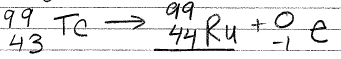 ⁹⁹₄₃Tc → ⁹⁹₄₄Ru + ⁰₋₁e